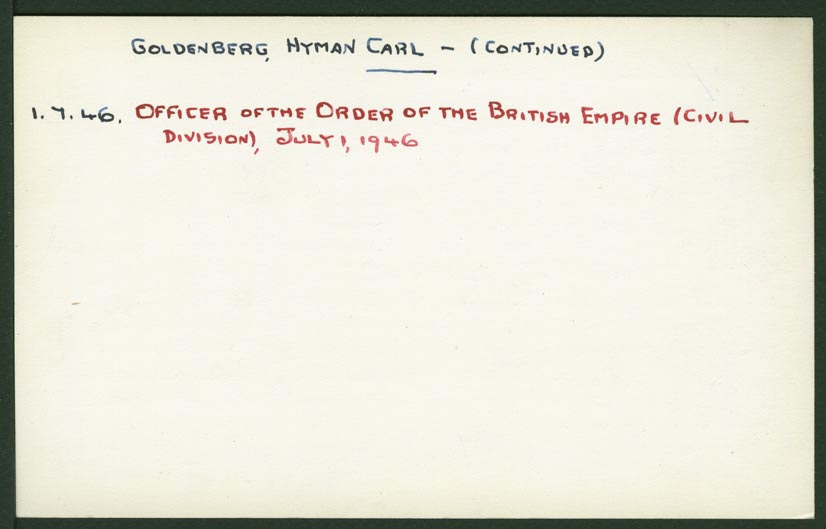 GOLDENBERG, HYMAN CARL – (CONTINUED)
1.7.46. OFFICER OF THE ORDER OF THE BRITISH EMPIRE (CIVIL
DIVISION), JULY 1, 1946